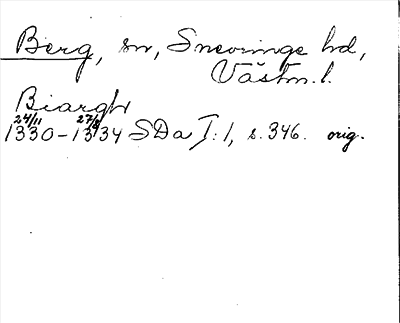 Berg, sn, Snevringe hd,
Västm. l.
Biargh
24/11 27/8
1330-1334 SDa I:1, s. 346. orig.